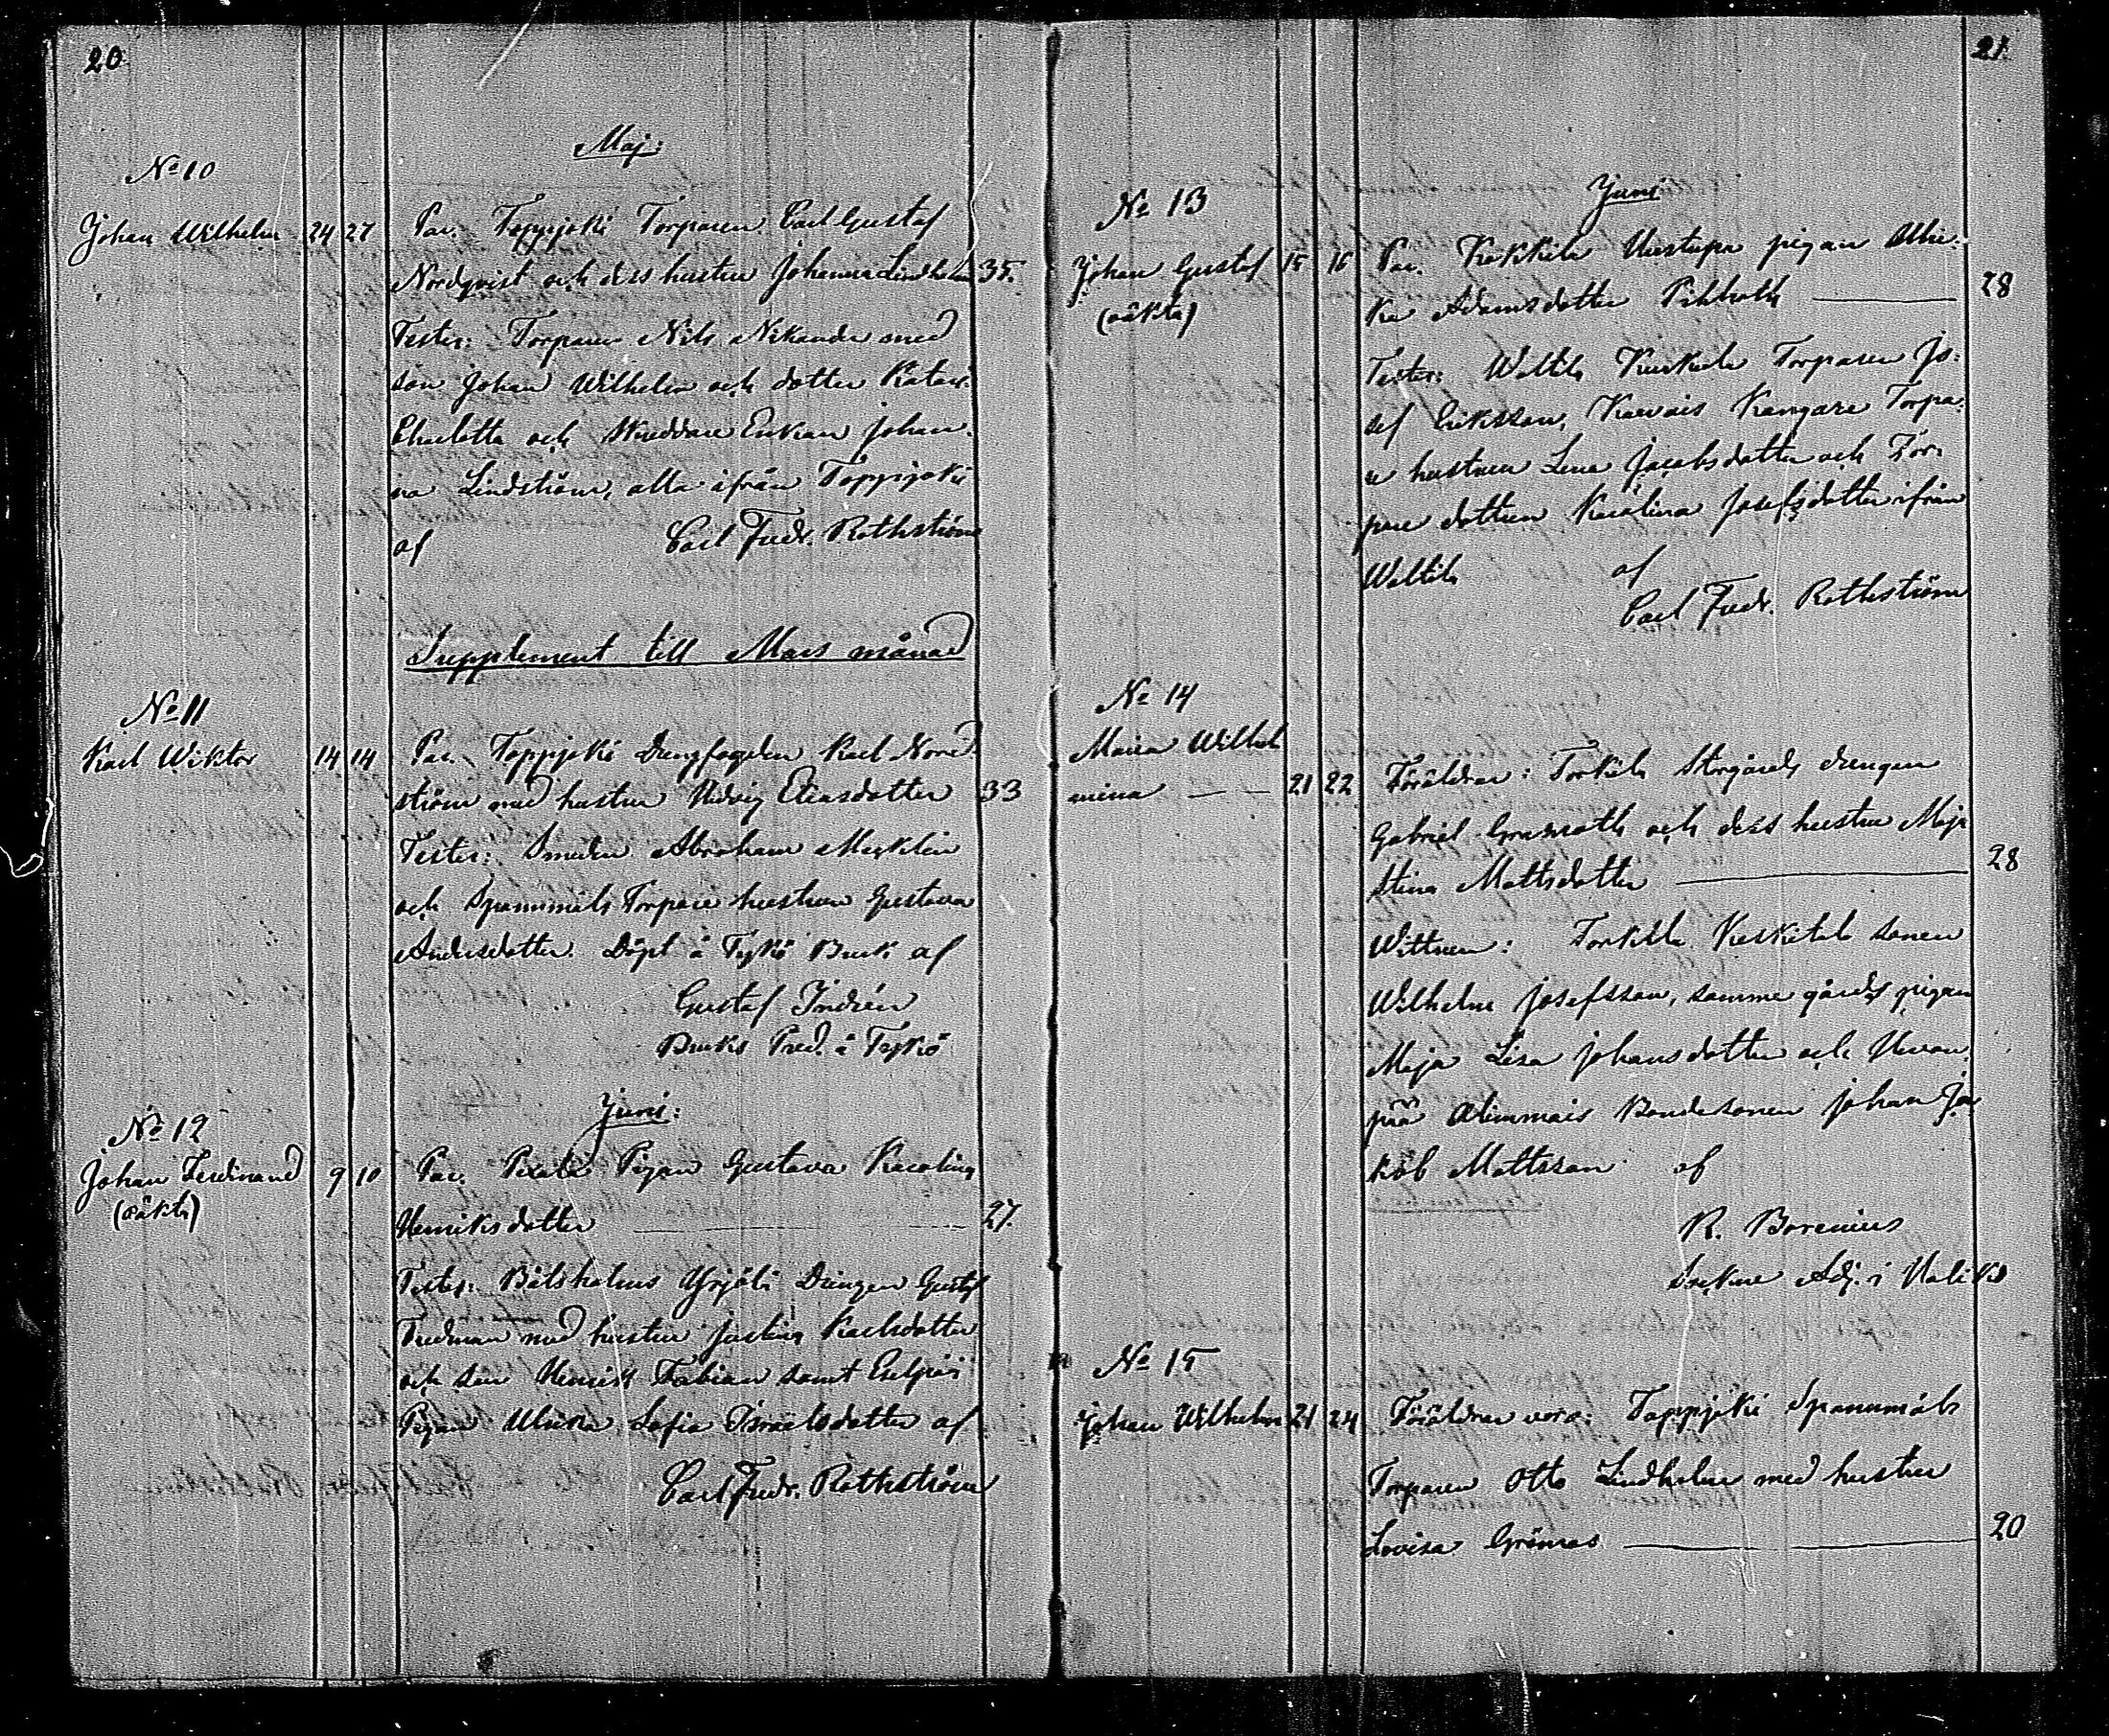 20
Maj:
No 10
Johan Wilhelm 24 27 Par. Teppjoki Torparen Carl Gustaf
Nordqvist och dess hustru Johanna Lindholm 35.
Testes: Torparen Nils Nikander med
son Johan Wilhelm och dotter Katari.
Charlotta och Skreddare Enkan Johan.
na Lindström, alla ifrån Teppjoki
af Carl Fredr. Rothström
Supplement till Mars månad
No 11
Karl Wiktor 14 14 Par. Teppjoki Drengfogden Karl Nord
ström med hustru Hedvig Eliasdotter 33
Testes: Smeden Abraham Mecklin
och Spannmåls Torpare hustrun Gustava
Andersdotter. Döpt å Tykö Bruk af
Gustaf Indrén
Bruks Pred. å Tykö
Juni:
No 12
Johan Ferdinand 9 10 Par. Pigan Gustava Karolina
(oäkta)
Henriksdotter 27.
Testes: Yrjälä Drengen Gustaf
Fredman med hustru Justina Karlsdotter
och son Henrik Fabian samt
Pigan Ulrika Sofia Israelsdotter af
Carl Fredr. Rothström
21.
Juni
No 13
Johan Gustaf 15 16 Par. Kokkila Uustupa pigan Ulri:
(oäkta)
ka Adamsdotter 28
Testes: Torparen Jo:
sef Eriksson, Kangare Torpa:
re hustrun Lena Jacobsdotter och Tor:
pare dottren Karolina Josefsdotter ifrån
af
Carl Fredr. Rothström
No 14
Maria Wilhel
mina 21 22 Föräldrar: Torkila Storgårds drengen
Gabriel Granroth och dess hustru Maja
Stina Mattsdotter 28
Wittnen: Torkila Keskitalo sonen
Wilhelm Josefsson, samme gårds pigan
Maja Lisa Johansdotter och
Bondesonen Johan Ja
kob Mattsson af
R. Borenius
Sockne Adj. i Haliko
No 15
Johan Wilhelm 21 24 Föräldrar voro: Teppjoki Spannmåls
Torparen Otto Lindholm med hustru
Lovisa Grönroos 20